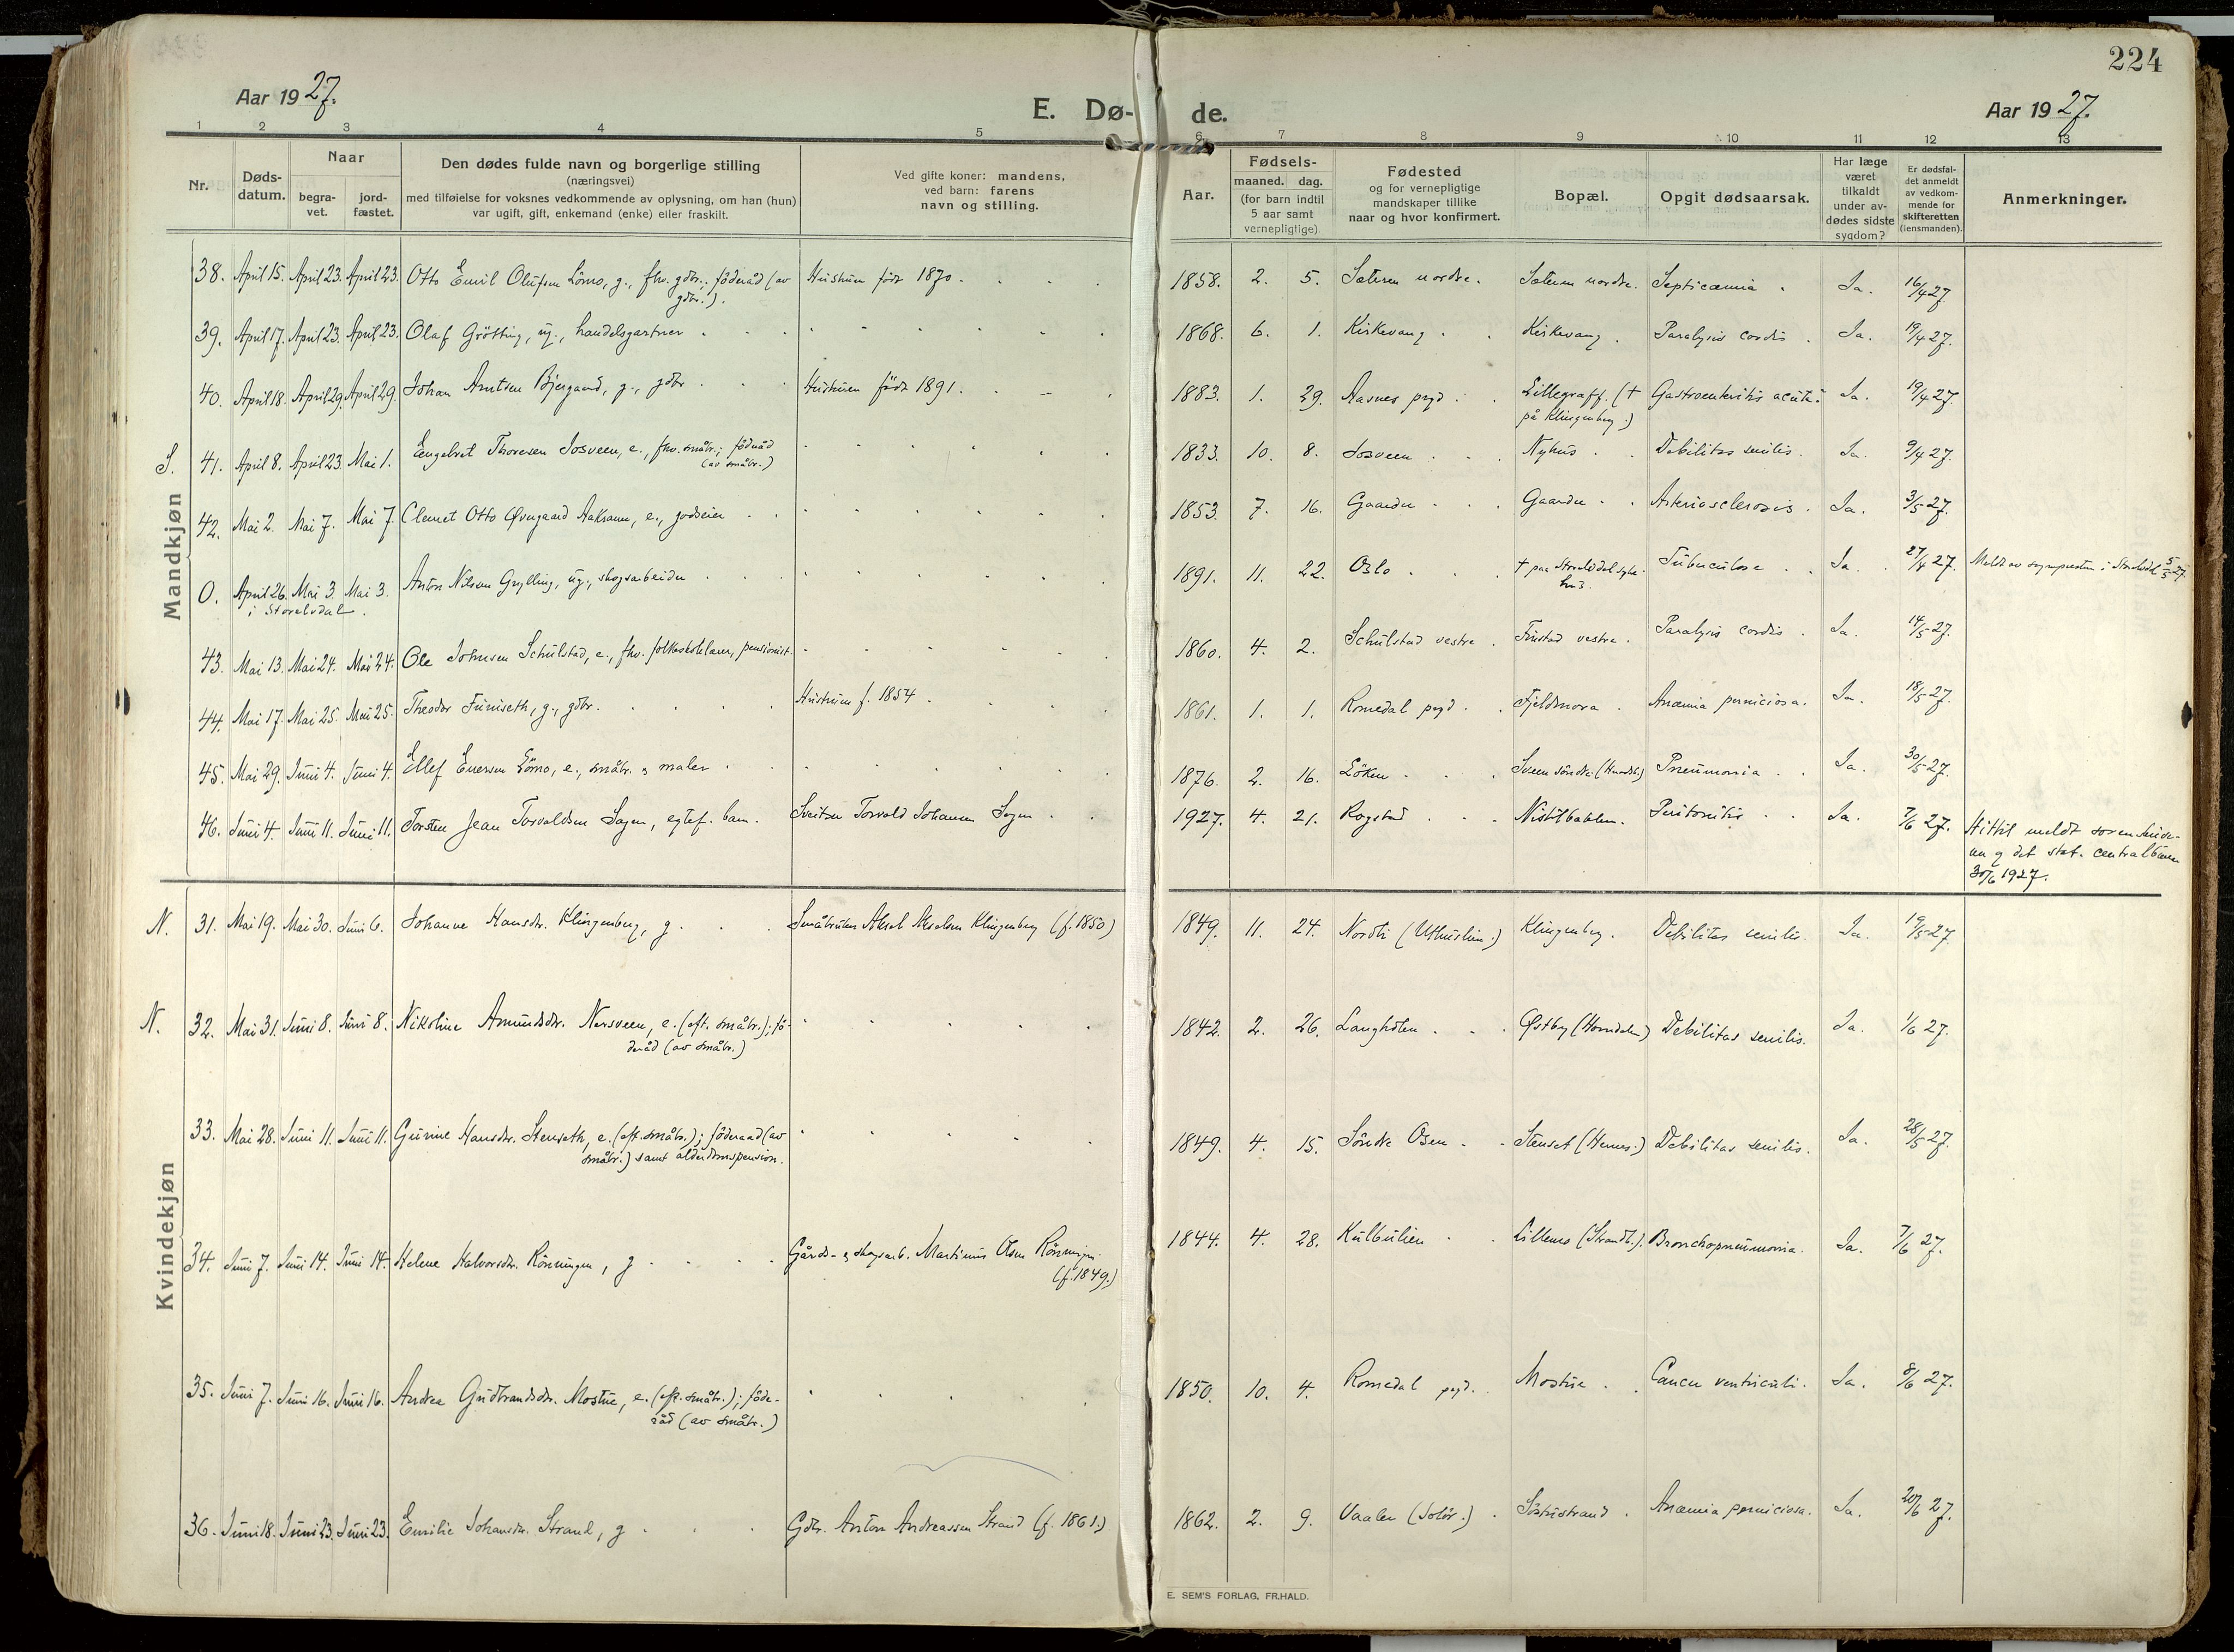 224
Aar 1927.
E. Dø- de.
Aar 1927.
1 2 3 4 5 6 7 8 9 10 11 12 13
Nr.
Døds-
datum.
Naar
begra-
vet.
jord-
fæstet.
Den dødes fulde navn og borgerlige stilling
(næringsvei)
med tilføielse for voksnes vedkommende av oplysning, om han (hun)
var ugift, gift, enkemand (enke) eller fraskilt.
Ved gifte koner: mandens,
ved barn: farens
navn og stilling.
Aar.
Fødsels-
maaned. dag.
(for barn indtil
5 aar samt
vernepligtige).
Fødested
og for vernepligtige
mandskaper tillike
naar og hvor konfirmert.
Bopæl.
Opgit dødsaarsak.
Har læge
været
tilkaldt
under av-
dødes sidste
sygdom?
Er dødsfal-
det anmeldt
av vedkom-
mende for
skifteretten
(lensmanden).
Anmerkninger.
Mandkjøn
38. April 15. April 23. April 23. Otto Emil Olufsen Lömo, g., fhv. gdbr.; föderåd (av Hustruen född 1870. 1858. 2. 5. Sæteren nordre. Sæteren nordre. Septicæmia. Ja. 16/4 27
gdbr.).
39. April 17. April 23. April 23. Olaf Grötting, ug., handelsgartner 1868. 6. 1. Kirkevang. Kirkevang. Paralysis cordis. Ja. 19/4 27.
40. April 18. April 29. April 29. Johan Arntsen Bjergaard, g., gdbr. Hustruen född 1891. 1883. 1. 29. Aasnes prgd. Lillegraff. († Gastroenteritis acuta. Ja. 19/4 27.
på Klingenberg.)
S. 41. April 8. April 23. Mai 1. Engebret Thoresen Josveen, e., fhv. småbr.; föderåd 1833. 10. 8. Josveen. Nyhus. Debilitas senilis. Ja. 9/4 27.
(av småbr.)
42. Mai 2. Mai 7. Mai 7. Clemet Otto Øvergaard Aakrann, e., godseier 1853. 7. 16. Gaarder. Gaarder. Arteriosclerosis. Ja. 3/5 27.
0. April 26. Mai 3. Mai 3. Anton Nilsen Grylling, ug., skogsarbeider 1891. 11. 22. Oslo. † paa Storelvdal syke- Tuberculose. Ja. 27/4 27. Meldt av sognepresten i Storelvdal 5/5 27.
i Storelvdal. hus.
43. Mai 13. Mai 24. Mai 24. Ole Johnsen Schulstad, e., fhv. folkeskolelærer, pensionist. 1860. 4. 2. Schulstad vestre. Finstad vestre. Paralysis cordis. Ja. 14/5 27.
44. Mai 17. Mai 25. Mai 25. Theodor Furuseth, g., gdbr. Hustruen f. 1854. 1861. 1. 1. Romedal prgd. Fjeldmora. Anæmia perniciosa. Ja. 18/5 27.
45. Mai 29. Juni 4. Juni 4. Ellef Enersen Lömo, e., småbr. & maler 1876. 2. 16. Löken. Sveen söndre (Hernesb.) Pneumonia. Ja. 30/5 27.
46. Juni 4. Juni 11. Juni 11. Torsten Jean Torvaldsen Sagen, egtef. barn. Sveitser Torvald Johansen Sagen 1927. 4. 21. Rogstad. Nistilbakken. Peritonitis. Ja. 7/6 27. Hittil meldt sorenskrive-
ren og det stat. centralbüreau
30/6 1927.
Kvindekjøn
N. 31. Mai 19. Mai 30. Juni 6. Johanne Hansdr. Klingenberg, g. Småbruker Aksel Akselsen Klingenberg (f. 1850) 1849. 11. 24. Nordli (Uthuslien.) Klingenberg. Debilitas senilis. Ja. 19/5 27
N. 32. Mai 31. Juni 8. Juni 8. Nikoline Amundsdr. Nersveen, e. (eft. småbr.); fö- 1842. 2. 26. Langholen. Østby (Horndalen) Debilitas senilis. Ja. 1/6 27.
deråd (av småbr.)
33. Mai 28. Juni 11. Juni 11. Gurine Hansdr. Stenseth, e. (eft. småbr.); föderaad (av 1849. 4. 15. Söndre Osen. Stenset (Hernes.) Debilitas senilis. Ja. 28/5 27.
småbr.) samt alderdomspension.
34. Juni 7. Juni 14. Juni 14. Helene Halvorsdr. Rönningen, g. Gårds- & skogsarb. Martinus Olsen Rönningen 1844. 4. 28. Kulbulien. Lillemo (Strandb.). Bronchopneumonia. Ja. 7/6 27.
(f. 1849.)
35. Juni 7. Juni 16. Juni 16. Andrea Gudbrandsdr. Mostue, e. (eft. småbr.); föde- 1850. 10. 4. Romedal prgd. Mostue. Cancer ventriculi. Ja. 8/6 27.
råd (av småbr.)
36. Juni 18. Juni 23. Juni 23. Emilie Johansdr. Strand, g. Gdbr. Anton Andreassen Strand (f. 1861.) 1862. 2. 9. Vaaler (Solör.) Sörstrand. Anæmia perniciosa. Ja. 20/6 27.
E. SEM'S FORLAG, FR.HALD.